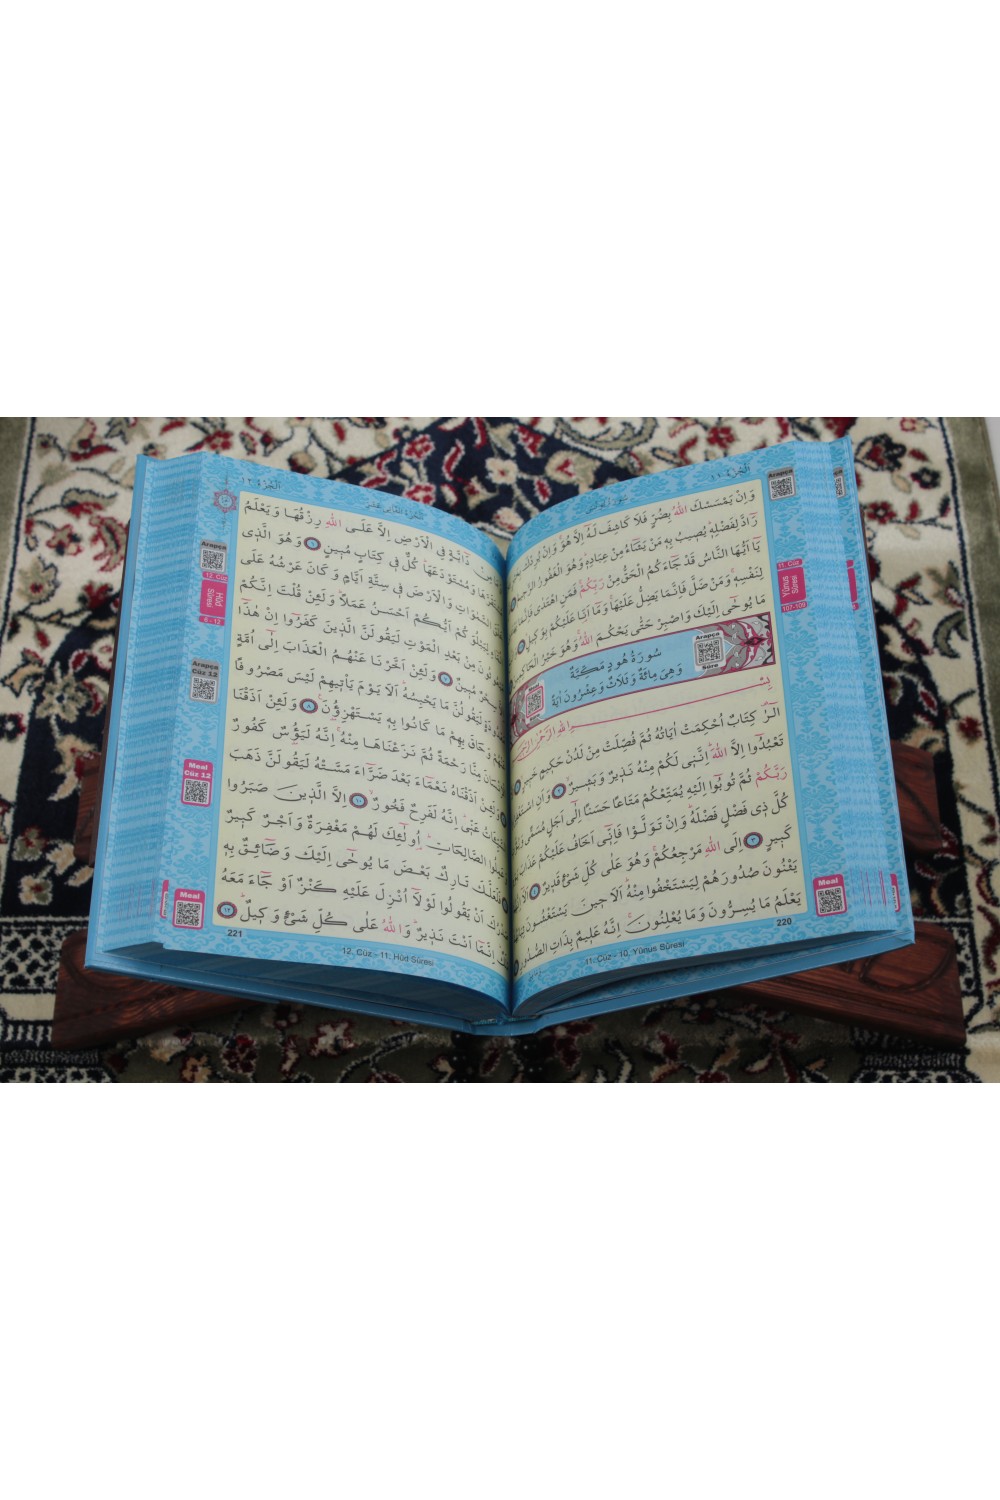 الجزء ١١
Arapça
وَاِنْ يَمْسَسْكَ اللّٰهُ بِضُرٍّ فَلَا كَاشِفَ لَهُٓ اِلَّا هُوَۚ وَاِنْ يُرِدْكَ
رَٓادَّ لِفَضْلِه۪ۜ يُص۪يبُ بِه۪ مَنْ يَشَٓاءُ مِنْ عِبَادِه۪ۜ وَهُوَ الْغَفُورُ الرَّح۪يمُ
يَٓا اَيُّهَا النَّاسُ قَدْ جَٓاءَكُمُ الْحَقُّ مِنْ رَبِّكُمْۚ فَمَنِ اهْتَدٰى فَاِنَّمَا
لِنَفْسِه۪ۚ وَمَنْ ضَلَّ فَاِنَّمَا يَضِلُّ عَلَيْهَاۚ وَمَٓا اَنَا عَلَيْكُمْ بِوَك۪يلٍۜ
مَا يُوحٰٓى اِلَيْكَ وَاصْبِرْ حَتّٰى يَحْكُمَ اللّٰهُۚ وَهُوَ خَيْرُ
11. Cüz
Yûnus
Sûresi
107-109
سُورَةُ هُودٍ مَكِّيَّةٌ
وَهِيَ مِائَةٌ وَثَلَاثٌ وَعِشْرُونَ اٰيَةً
Arapça
Sûre
Meal
اللّٰهِ الرَّحْمٰنِ الرَّح۪يمِ
الٓرٰ۠ كِتَابٌ اُحْكِمَتْ اٰيَاتُهُ ثُمَّ فُصِّلَتْ مِنْ لَدُنْ حَك۪يمٍ خَب۪يرٍۙ
تَعْبُدُٓوا اِلَّا اللّٰهَۜ اِنَّن۪ي لَكُمْ مِنْهُ نَذ۪يرٌ وَبَش۪يرٌۙ ٢ وَاَنِ
رَبَّكُمْ ثُمَّ تُوبُٓوا اِلَيْهِ يُمَتِّعْكُمْ مَتَاعًا حَسَنًا اِلٰٓى اَجَلٍ مُسَمًّى
كُلَّ ذ۪ي فَضْلٍ فَضْلَهُۜ وَاِنْ تَوَلَّوْا فَاِنّ۪ٓي اَخَافُ عَلَيْكُمْ عَذَابَ
كَب۪يرٍ ٣ اِلَى اللّٰهِ مَرْجِعُكُمْۚ وَهُوَ عَلٰى كُلِّ شَيْءٍ قَد۪يرٌ ٤
يَثْنُونَ صُدُورَهُمْ لِيَسْتَخْفُوا مِنْهُۜ اَلَا ح۪ينَ يَسْتَغْشُونَ
يَعْلَمُ مَا يُسِرُّونَ وَمَا يُعْلِنُونَۚ اِنَّهُ عَل۪يمٌ بِذَاتِ الصُّدُورِ
Meal
220
11. Cüz - 10. Yûnus Sûresi
الجزء ١٢
الجزء الثاني عشر
دَٓابَّةٍ فِي الْاَرْضِ اِلَّا عَلَى اللّٰهِ رِزْقُهَا وَيَعْلَمُ
وَمُسْتَوْدَعَهَاۜ كُلٌّ ف۪ي كِتَابٍ مُب۪ينٍ ٦ وَهُوَ الَّذ۪ي
السَّمٰوَاتِ وَالْاَرْضَ ف۪ي سِتَّةِ اَيَّامٍ وَكَانَ عَرْشُهُ عَلَى
لِيَبْلُوَكُمْ اَيُّكُمْ اَحْسَنُ عَمَلًاۜ وَلَئِنْ قُلْتَ اِنَّكُمْ
مِنْ بَعْدِ الْمَوْتِ لَيَقُولَنَّ الَّذ۪ينَ كَفَرُٓوا اِنْ هٰذَٓا
سِحْرٌ مُب۪ينٌ ٧ وَلَئِنْ اَخَّرْنَا عَنْهُمُ الْعَذَابَ اِلٰٓى اُمَّةٍ
لَيَقُولُنَّ مَا يَحْبِسُهُۜ اَلَا يَوْمَ يَأْت۪يهِمْ لَيْسَ مَصْرُوفًا
وَحَاقَ بِهِمْ مَا كَانُوا بِه۪ يَسْتَهْزِؤُ۫نَ۟ ٨ وَلَئِنْ اَذَقْنَا
مِنَّا رَحْمَةً ثُمَّ نَزَعْنَاهَا مِنْهُۚ اِنَّهُ لَيَؤُ۫سٌ كَفُورٌ
وَلَئِنْ اَذَقْنَاهُ نَعْمَٓاءَ بَعْدَ ضَرَّٓاءَ مَسَّتْهُ لَيَقُولَنَّ ذَهَبَ
عَنّ۪يۜ اِنَّهُ لَفَرِحٌ فَخُورٌۙ ١٠ اِلَّا الَّذ۪ينَ صَبَرُوا
الصَّالِحَاتِۜ اُو۬لٰٓئِكَ لَهُمْ مَغْفِرَةٌ وَاَجْرٌ كَب۪يرٌ
فَلَعَلَّكَ تَارِكٌ بَعْضَ مَا يُوحٰٓى اِلَيْكَ وَضَٓائِقٌ بِه۪
اَنْ يَقُولُوا لَوْلَٓا اُنْزِلَ عَلَيْهِ كَنْزٌ اَوْ جَٓاءَ مَعَهُ
اِنَّمَٓا اَنْتَ نَذ۪يرٌۜ وَاللّٰهُ عَلٰى كُلِّ شَيْءٍ وَك۪يلٌۜ ١٢
Arapça
12. Cüz
Hûd
Sûresi
6 - 12
Arapça
Cüz 12
Meal
Cüz 12
Meal
221
12. Cüz - 11. Hûd Sûresi